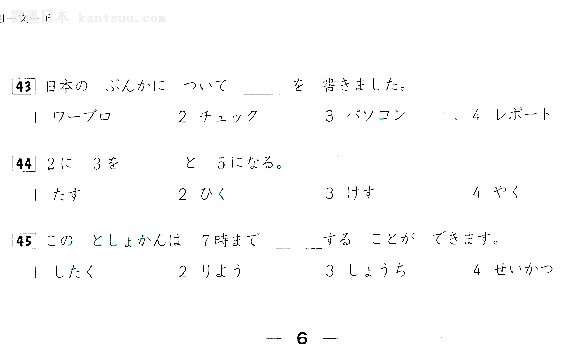 kantsuu.com
43 日本の ぶんかに ついて ____ を 書きました。
1 ワープロ 2 チェック 3 パソコン 4 レポート
44 2に 3を と 5になる。
1 たす 2 ひく 3 けす 4 やく
45 この としょかんは 7時まで ____する ことが できます。
1 したく 2 りよう 3 しょうち 4 せいかつ
— 6 —